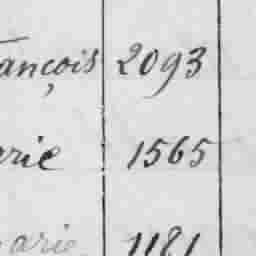 ançois 2093
arie 1565
arie 1181